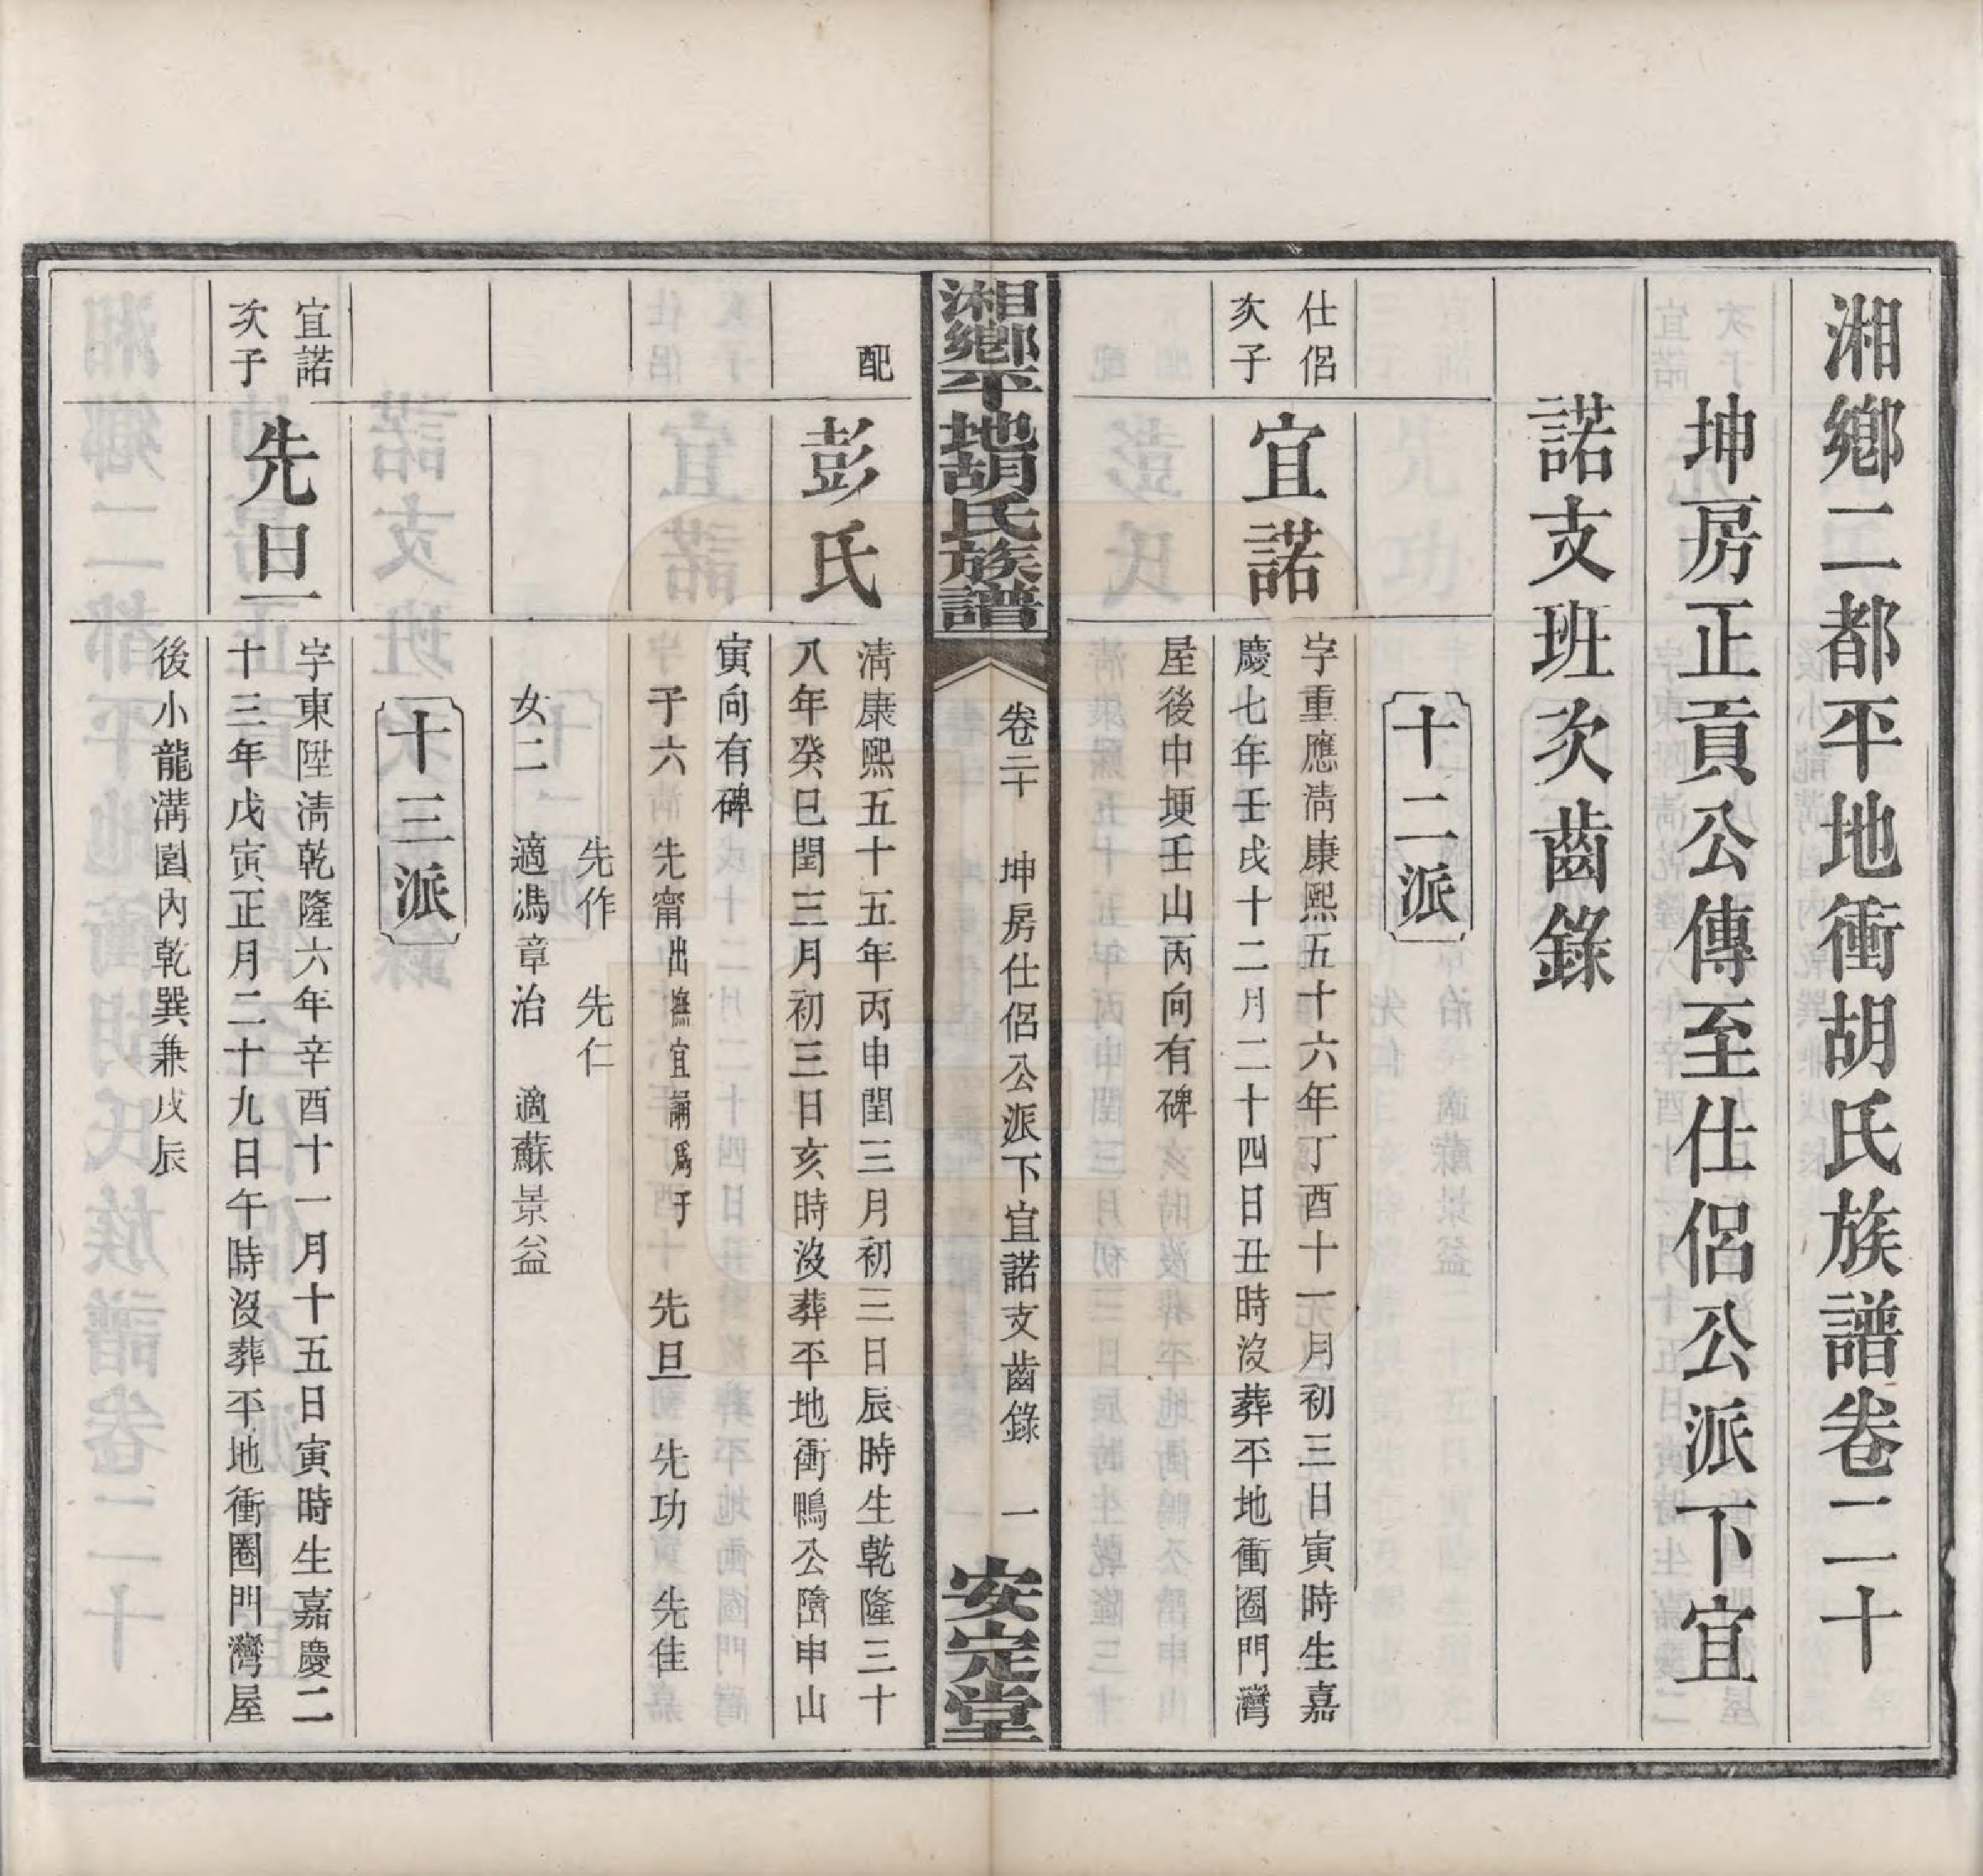 湘鄉二都平地衝胡氏族譜卷二十
坤房正貢公傳至仕侶公派下宜
諾支班次齒錄
十二派
仕侶
次子
宜諾
字重應淸康熙五十六年丁酉十一月初三日寅時生嘉
慶七年壬戌十二月二十四日丑時沒葬平地衝圈門灣
屋後中埂壬山丙向有碑
湘鄉平地胡氏族譜
卷二十 坤房仕侶公派下宜諾支齒錄 一
安定堂
配
彭氏
淸康熙五十五年丙申閏三月初三日辰時生乾隆三十
八年癸巳閏三月初三日亥時沒葬平地衝鴨公嶞申山
寅向有碑
子六 先甯出撫宜誦爲子 先旦 先功 先佳
先作 先仁
女二 適馮章治 適蘇景益
十三派
宜諾
次子
先旦
字東陞淸乾隆六年辛酉十一月十五日寅時生嘉慶二
十三年戊寅正月二十九日午時沒葬平地衝圈門灣屋
後小龍溝園內乾巽兼戌辰